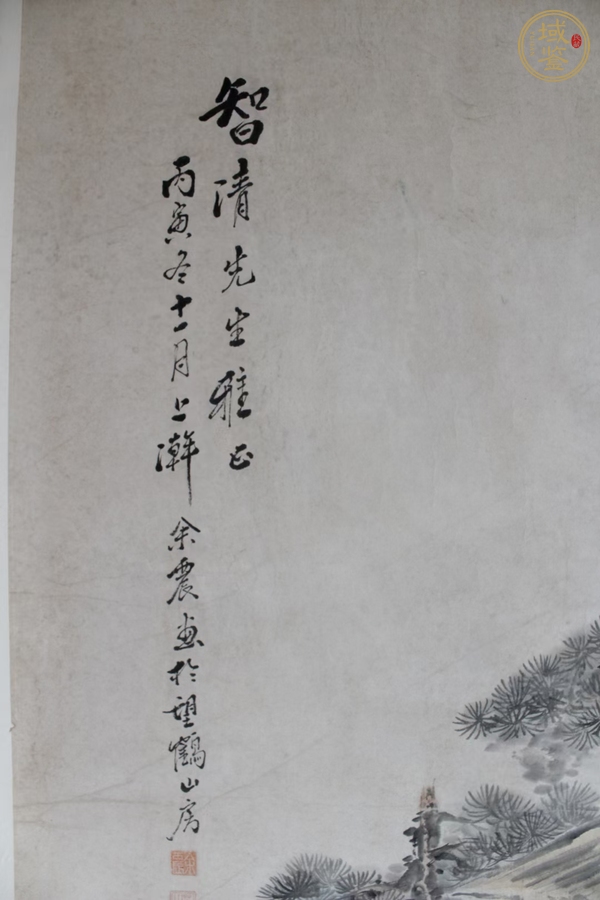 智清先生雅正
丙寅冬十一月上澣余震画於望鶴山房
域鉴